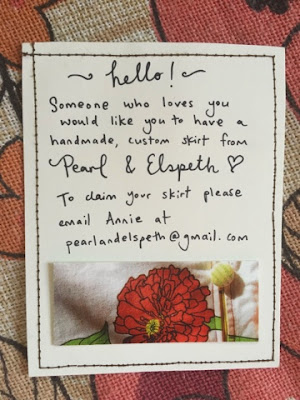 hello!
Someone who loves you
would like you to have a
handmade, custom skirt from
Pearl & Elspeth ♡
To claim your skirt please
email Annie at
pearlandelspeth@gmail.com